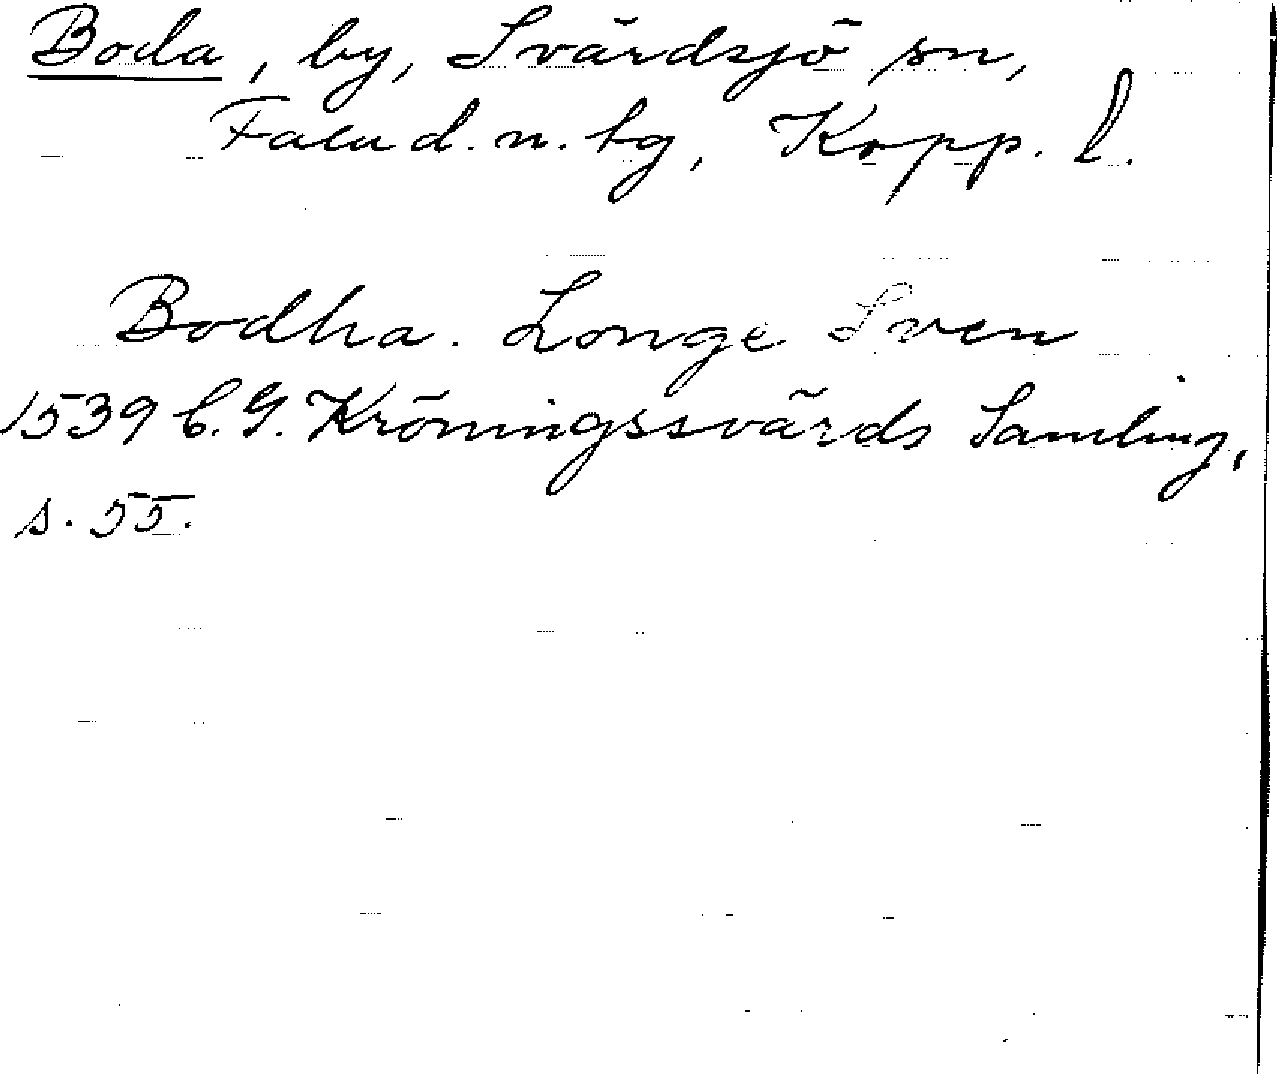 Boda, by, Svärdsjö sn,
Falu d. n. tg, Kopp. l.
Bodha. Longe Sven
1539 C. G. Kröningssvärds Samling,
s. 55.